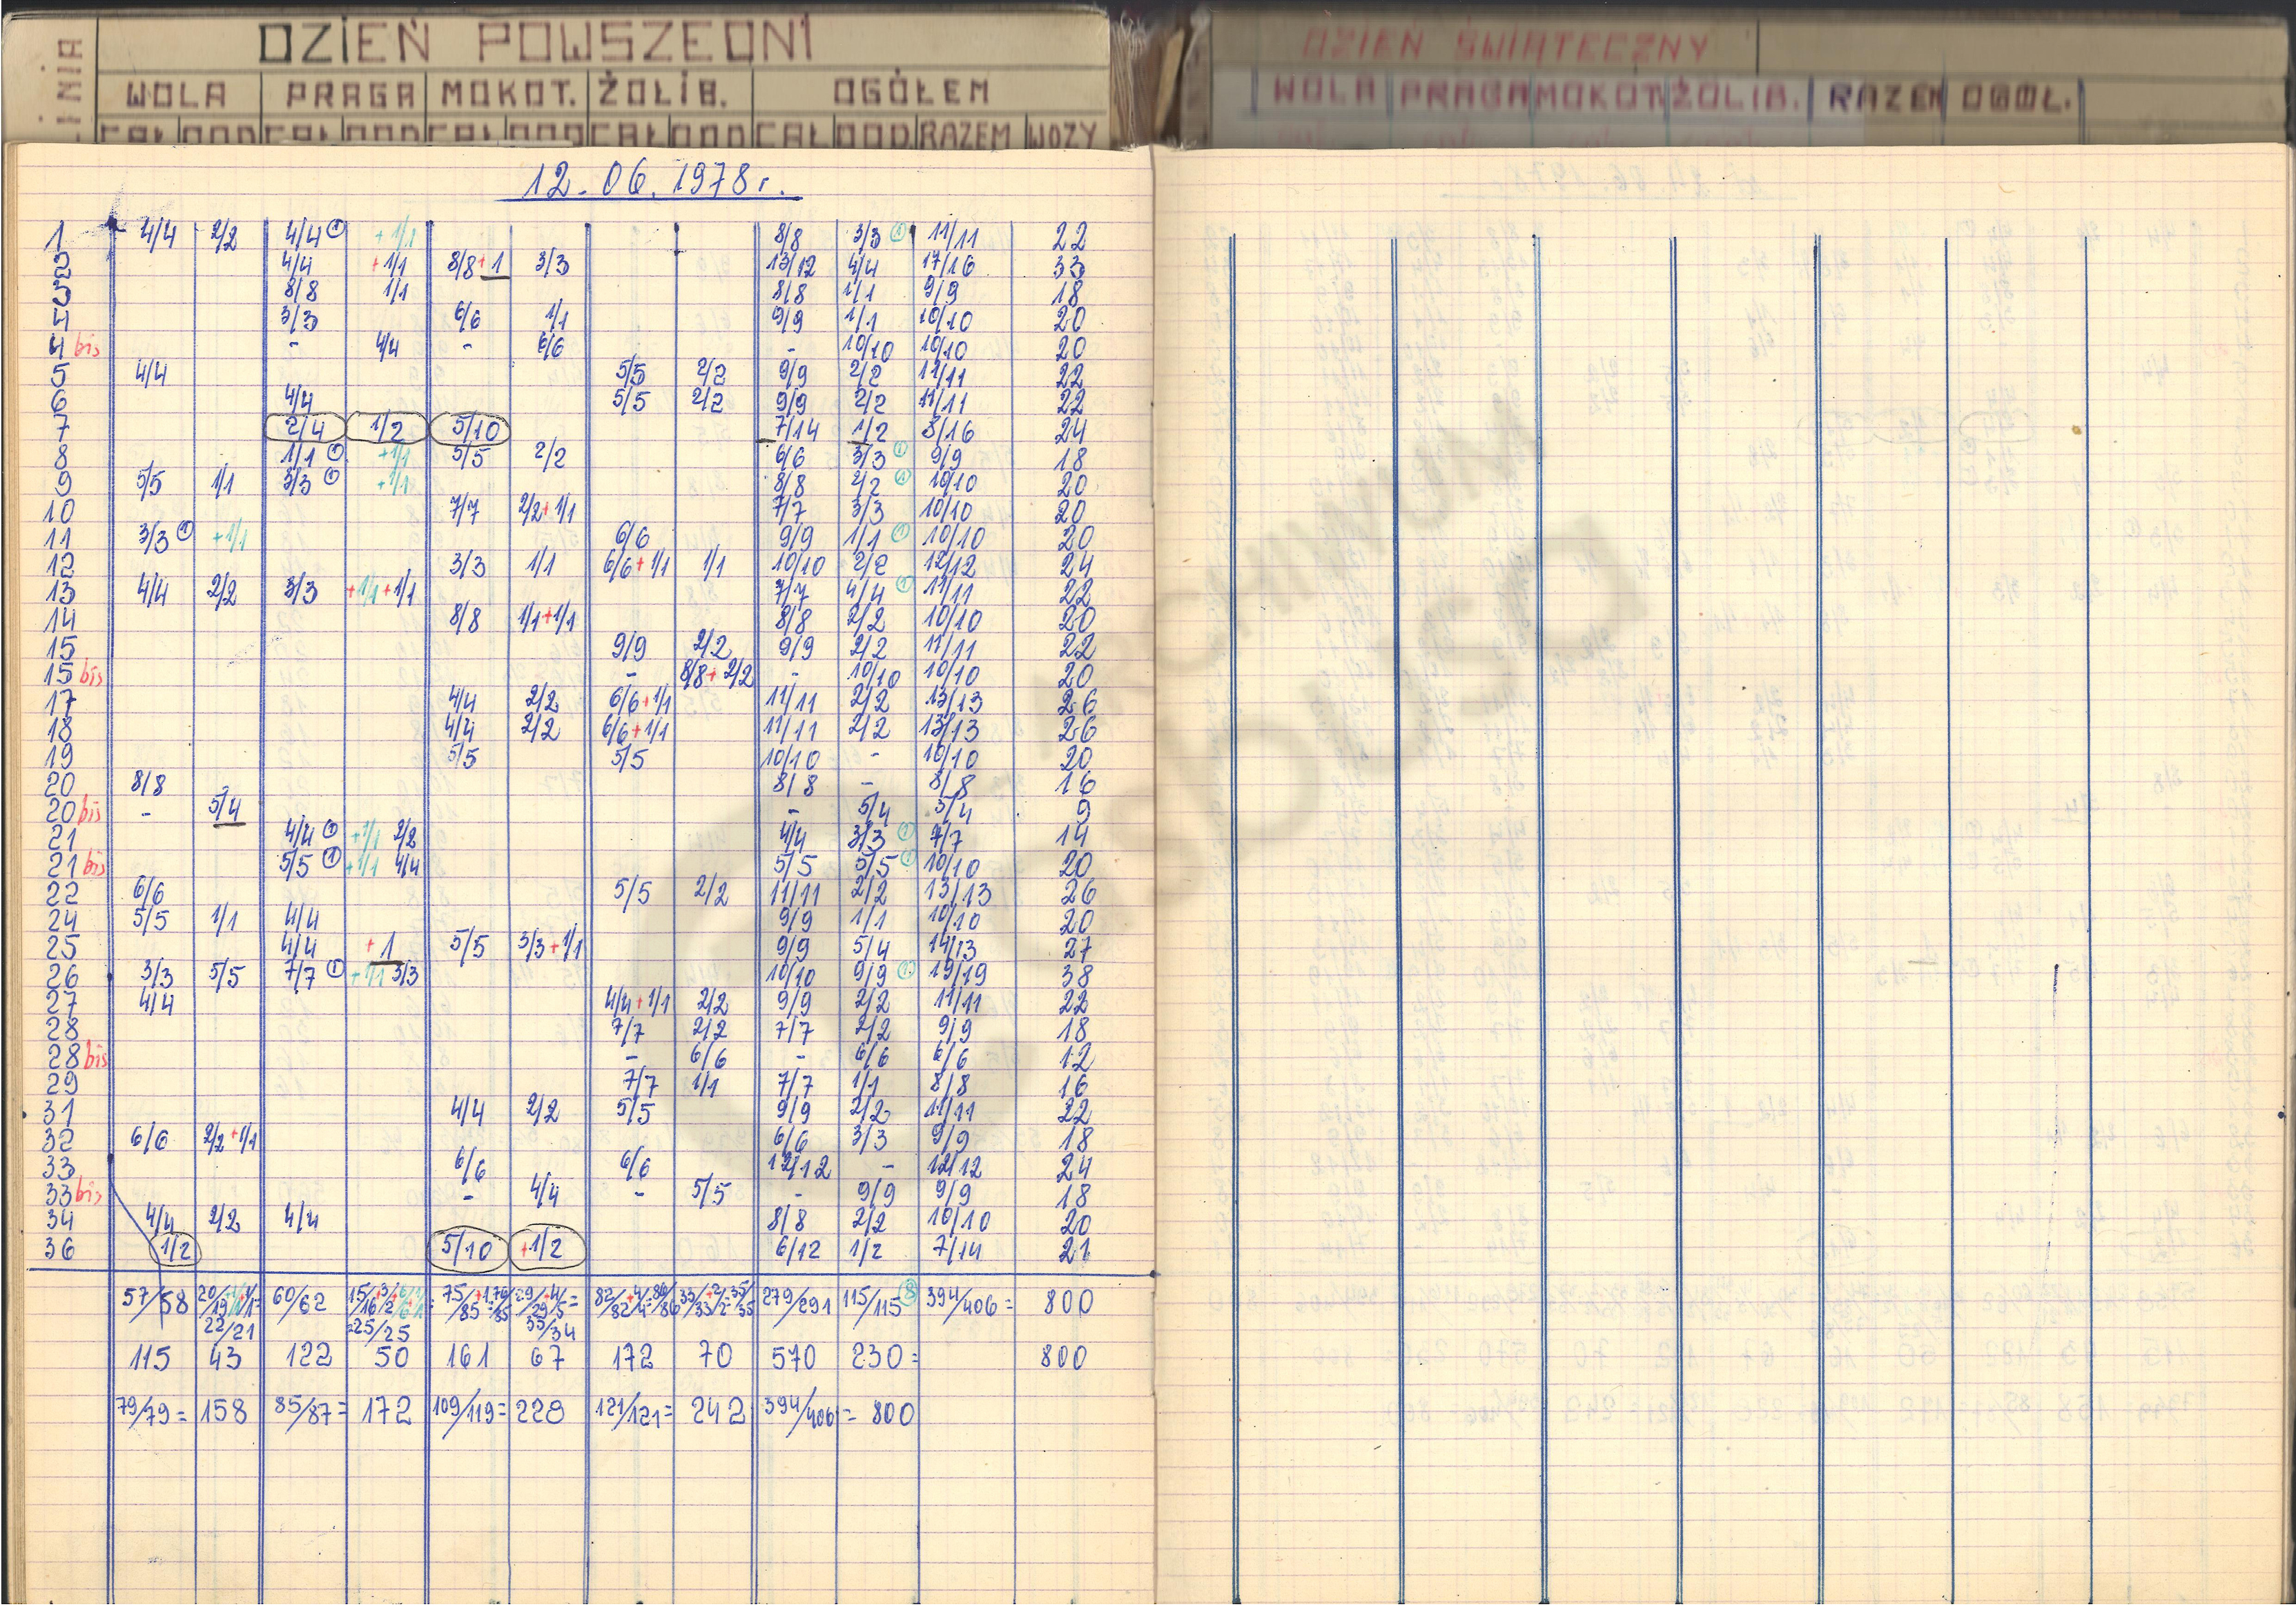 LINIA DZIEŃ POWSZEDNI
WOLA PRAGA MOKOT. ŻOLIB. OGÓŁEM
CAŁ DOD CAŁ DOD CAŁ DOD CAŁ DOD CAŁ DOD RAZEM WOZY
DZIEŃ ŚWIĄTECZNY
WOLA PRAGA MOKOT ŻOLIB. RAZEM OGÓŁ.
12.06.1978r.
1 4/4 2/2 4/4 ① +1/1 8/8 3/3 ① 11/11 22
2 4/4 +1/1 8/8+1 3/3 13/12 4/4 17/16 33
3 8/8 1/1 8/8 1/1 9/9 18
4 3/3 6/6 1/1 9/9 1/1 10/10 20
4 bis - 4/4 - 6/6 - 10/10 10/10 20
5 4/4 5/5 2/2 9/9 2/2 11/11 22
6 4/4 5/5 2/2 9/9 2/2 11/11 22
7 2/4 1/2 5/10 7/14 1/2 8/16 24
8 1/1 ① +1/1 5/5 2/2 6/6 3/3 ① 9/9 18
9 5/5 1/1 3/3 ① +1/1 8/8 2/2 ① 10/10 20
10 7/7 2/2+1/1 7/7 3/3 10/10 20
11 3/3 ① +1/1 6/6 9/9 1/1 ① 10/10 20
12 3/3 1/1 6/6+1/1 1/1 10/10 2/2 12/12 24
13 4/4 2/2 3/3 +1/1+1/1 7/7 4/4 ① 11/11 22
14 8/8 1/1+1/1 8/8 2/2 10/10 20
15 9/9 2/2 9/9 2/2 11/11 22
15 bis - 8/8+2/2 - 10/10 10/10 20
17 4/4 2/2 6/6+1/1 11/11 2/2 13/13 26
18 4/4 2/2 6/6+1/1 11/11 2/2 13/13 26
19 5/5 5/5 10/10 - 10/10 20
20 8/8 8/8 - 8/8 16
20 bis - 5/4 - 5/4 5/4 9
21 4/4 ① +1/1 2/2 4/4 3/3 ① 7/7 14
21 bis 5/5 ① +1/1 4/4 5/5 5/5 ① 10/10 20
22 6/6 5/5 2/2 11/11 2/2 13/13 26
24 5/5 1/1 4/4 9/9 1/1 10/10 20
25 4/4 +1 5/5 3/3+1/1 9/9 5/4 14/13 27
26 3/3 5/5 7/7 ① +1/1 3/3 10/10 9/9 ① 19/19 38
27 4/4 4/4+1/1 2/2 9/9 2/2 11/11 22
28 7/7 2/2 7/7 2/2 9/9 18
28 bis - 6/6 - 6/6 6/6 12
29 7/7 1/1 7/7 1/1 8/8 16
31 4/4 2/2 5/5 9/9 2/2 11/11 22
32 6/6 2/2+1/1 6/6 3/3 9/9 18
33 6/6 6/6 12/12 - 12/12 24
33 bis - 4/4 - 5/5 - 9/9 9/9 18
34 4/4 2/2 4/4 8/8 2/2 10/10 20
36 1/2 5/10 +1/2 6/12 1/2 7/14 21
57/58 20/19+1/1+1/1= 60/62 15/16+3/2+6/6+1/1= 75/85+1=76/85 29/29+4/5= 82/82+4/4=86/86 33/33+2/2=35/35 279/291 115/115 ⑧ 394/406= 800
22/21 =25/25 33/34
115 43 122 50 161 67 172 70 570 230= 800
79/79= 158 85/87= 172 109/119= 228 121/121= 242 394/406= 800